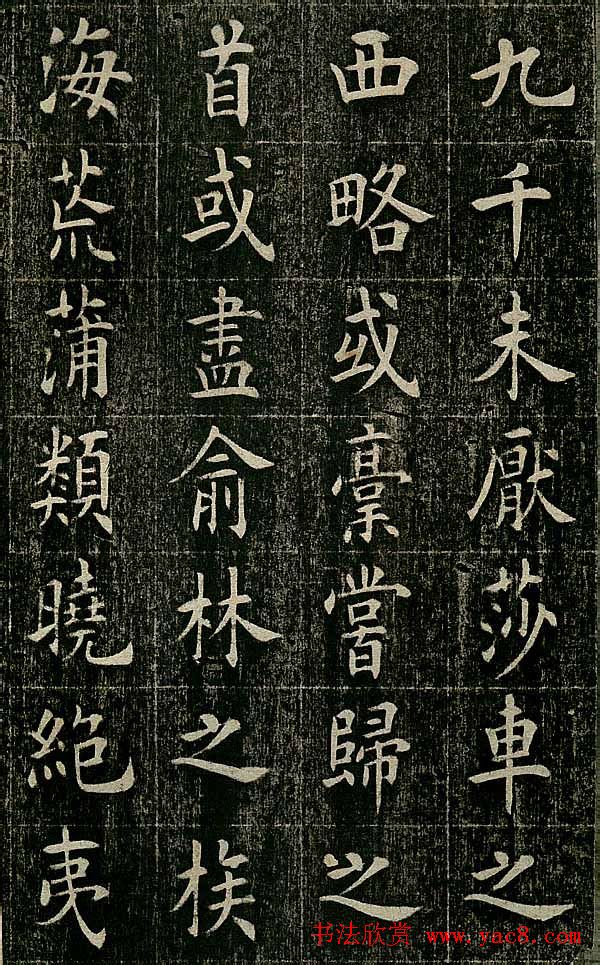 九千未厭莎車之
西略或稾嘗歸之
首或盡俞林之族
海荒蒲類曉絶夷
书法欣赏 www.yac8.com